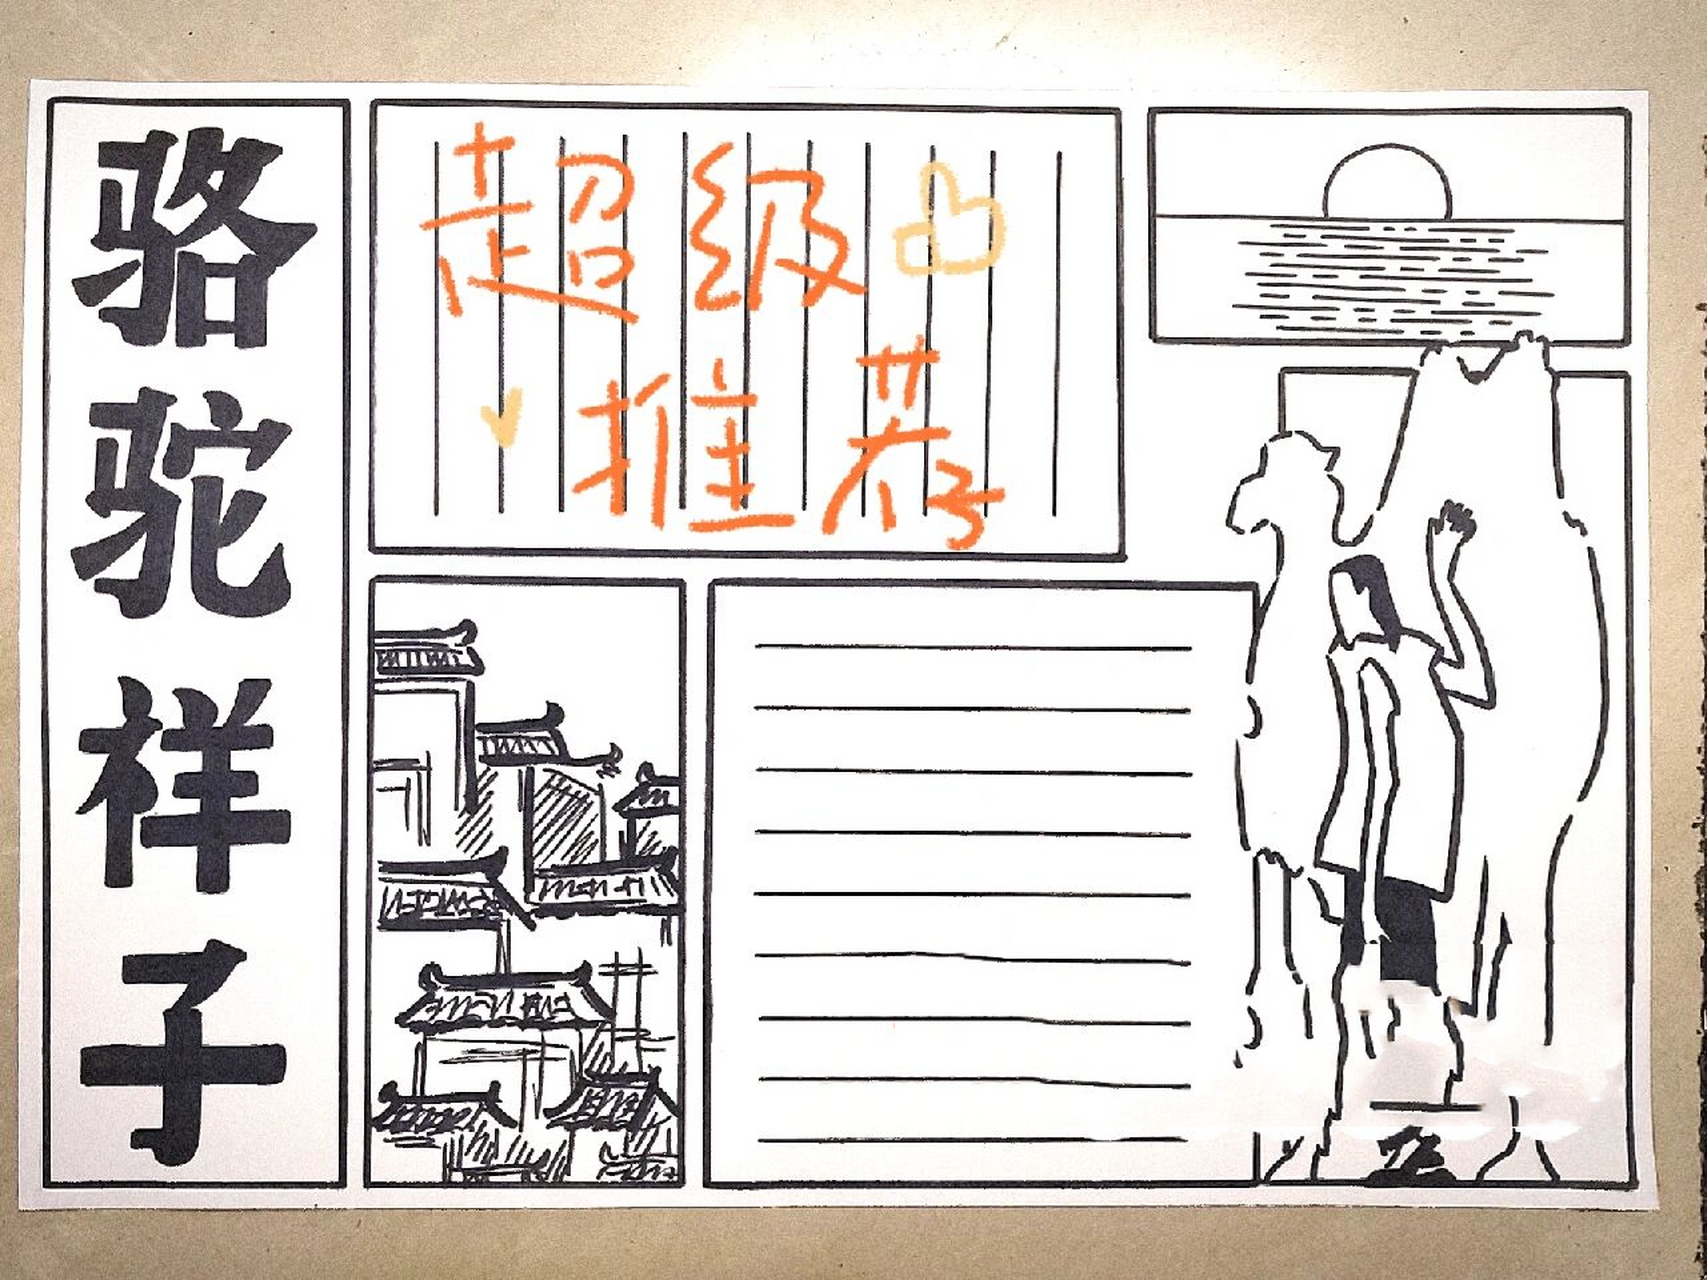 骆驼祥子
超级
推荐